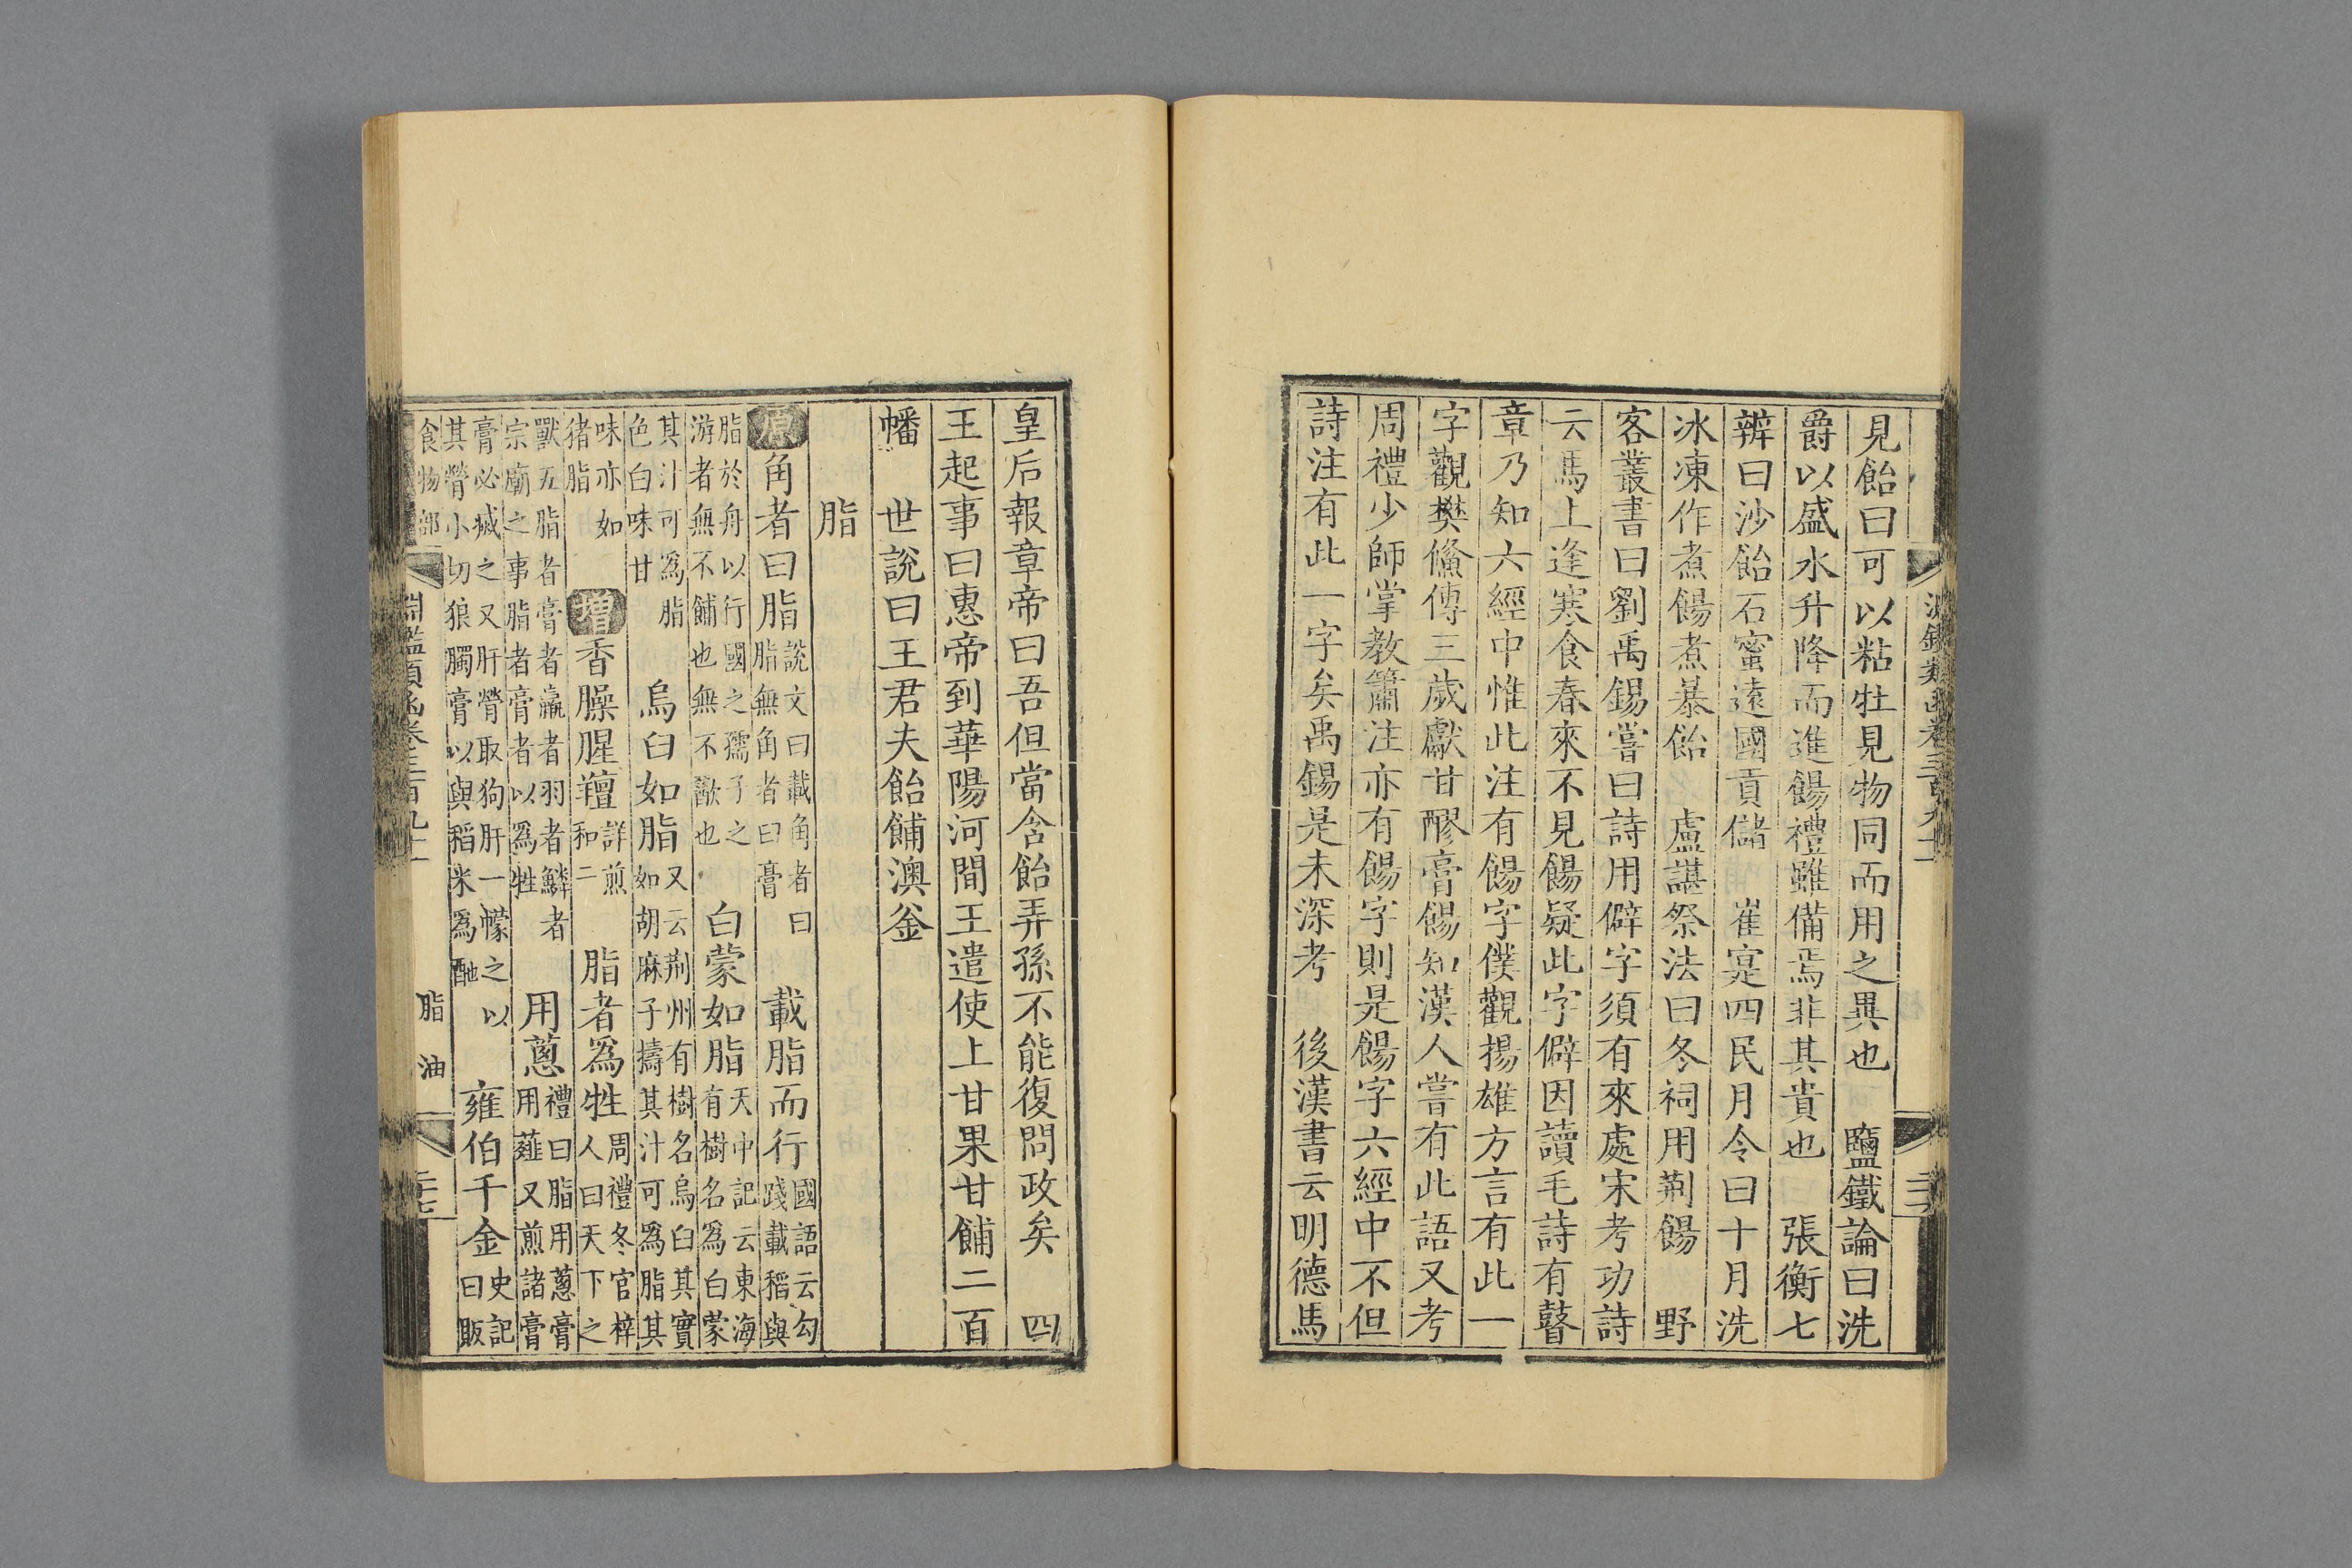 見飴曰可以粘牡見物同而用之異也　鹽鐵論曰洗
爵以盛水升降而進餳禮雖備焉非其貴也　張衡七
辨曰沙飴石蜜遠國貢儲　崔寔四民月令曰十月洗
冰凍作煮餳煮暴飴　盧諶祭法曰冬祠用荆餳　野
客叢書曰劉禹錫嘗曰詩用僻字須有來處宋考功詩
云馬上逢寒食春來不見餳疑此字僻因讀毛詩有瞽
章乃知六經中惟此注有餳字僕觀揚雄方言有此一
字觀樊儵傳三歲獻甘醪膏餳知漢人嘗有此語又考
周禮少師掌教簫注亦有餳字則是餳字六經中不但
詩注有此一字矣禹錫是未深考　後漢書云明德馬
皇后報章帝曰吾但當含飴弄孫不能復問政矣　四
王起事曰惠帝到華陽河間王遣使上甘果甘餔二百
幡　世說曰王君夫飴餔澳釜
脂
原角者曰脂說文曰戴角者曰脂無角者曰膏　載脂而行國語云勾踐載稻與
脂於舟以行國之孺子之游者無不餔也無不歠也　白蒙如脂天中記云東海有樹名爲白蒙
其汁可爲脂色白味甘　烏臼如脂又云荆州有樹名烏臼其實如胡麻子擣其汁可爲脂其
味亦如猪脂　增香臊腥羶詳煎和二　脂者爲牲周禮冬官梓人曰天下之
獸五脂者膏者臝者羽者鱗者宗廟之事脂者膏者以爲牲　用蔥禮曰脂用蔥膏用薤又煎諸膏
膏必滅之又肝膋取狗肝一幪之以其膋小切狼臅膏以與稻米爲酏　雍伯千金史記曰販
食物部　淵鑑類函卷三百九十一　脂　油